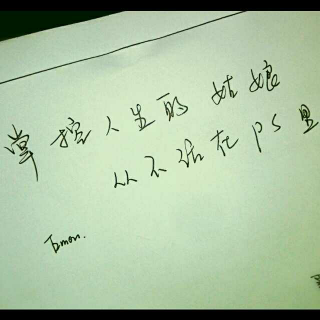 掌控人生的姑娘
从不活在PS里